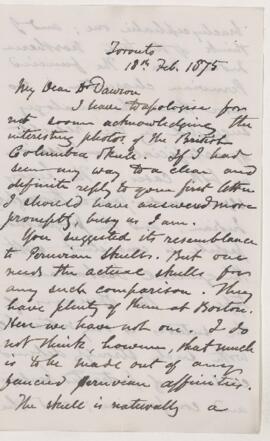 Toronto
18th Feb. 1875
My Dear Dr Dawson
I have to apologise for
not sooner acknowledging the
interesting photos of the British
Columbia Skull. If I had
seen my way to a clear and
definite reply to your first letter
I should have answered more
promptly, busy as I am.
You suggested its resemblance
to Peruvian skulls. But one
needs the actual skulls for
any such comparison. They
have plenty of them at Boston.
Here we have not one. I do
not think, however, that much
is to be made out of any
fancied Peruvian affinities.
The skull is naturally a